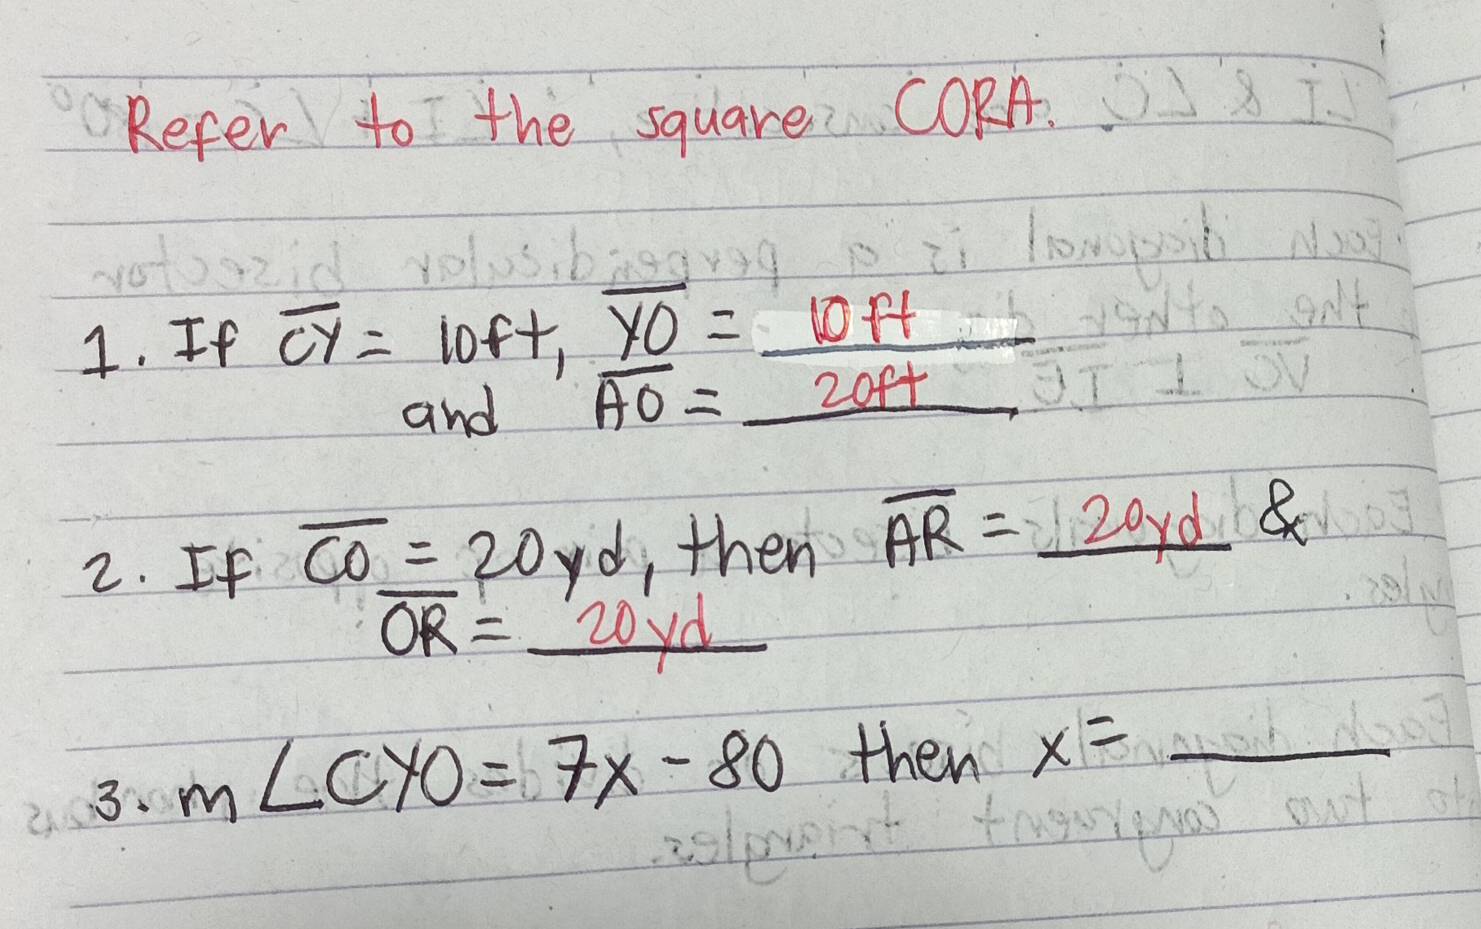 Refer to the square CORA.
1. If CY = 10ft, YO = 10ft
and AO = 20ft
2. If CO = 20yd, then AR = 20yd &
OR = 20yd
3. m∠CYO = 7x - 80 then x = ______